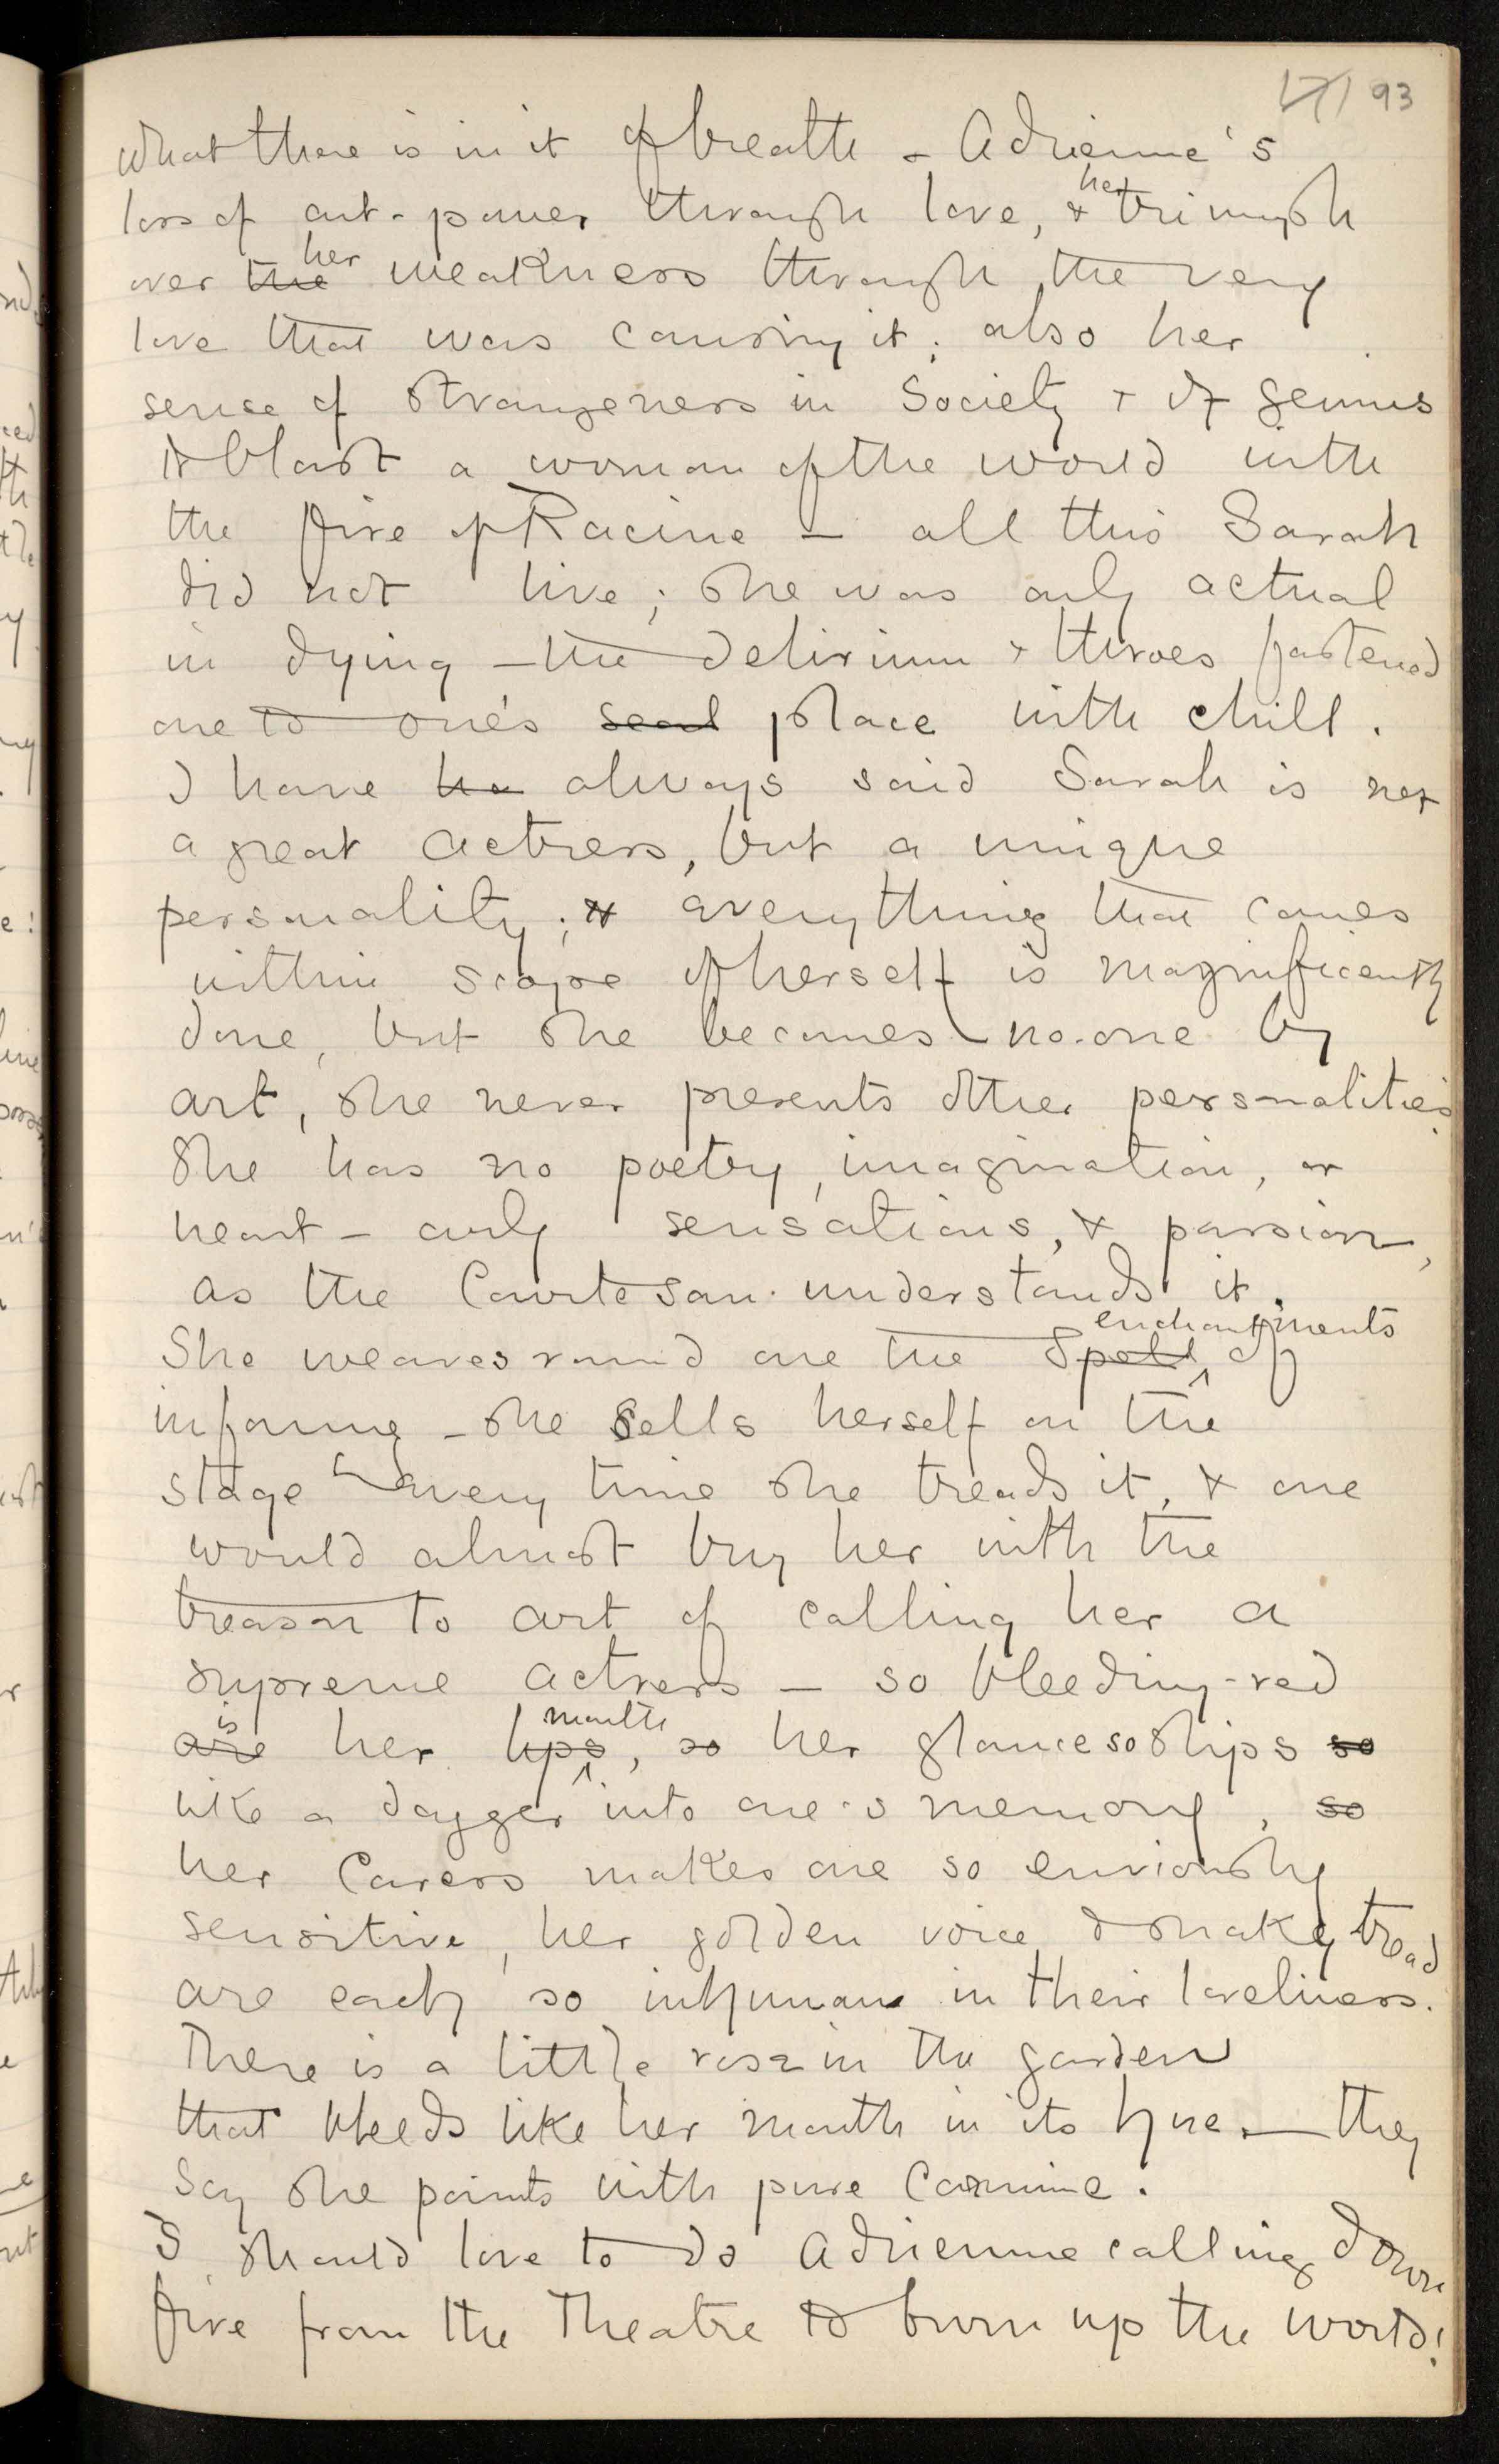 93
What there is in it of breath – Adrienne's
loss of art-power through love, & her triumph
over the her weakness through the very
love that was causing it; also her
sense of strangeness in Society & of genius
to blast a woman of the world with
the fire of Racine – all this Sarah
did not live; she was only actual
in dying – the delirium & throes fastened
one to one's seat place with chill.
I have ha always said Sarah is not
a great actress, but a unique
personality; & everything that comes
within scope of herself is magnificently
done, but she becomes no-one by
art, she never presents other personalities.
She has no poetry, imagination, or
heart – only sensations, & passion,
as the Courtesan understands it.
She weaves round one the Spell enchantments of
infamy – she sells herself on the
stage every time she treads it, & one
would almost buy her with the
treason to art of calling her a
supreme actress – so bleeding-red
are is her lips mouth, so her glance so slips so
like a dagger into one's memory, so
her Caress makes one so enviously
sensitive, her golden voice & snaky tread
are each so inhuman in their loveliness.
There is a little rose in the garden
that bleeds like her mouth in its hue. – they
say she paints with pure Carmine.
I should love to do Adrienne calling down
fire from the Theatre to burn up the world!